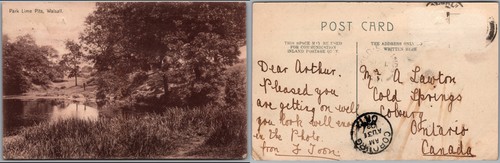 Park Lime Pits, Walsall.
POST CARD
THIS SPACE MAY BE USED
FOR COMMUNICATION
INLAND POSTAGE ONLY
THE ADDRESS ONLY
WRITTEN HERE
Dear Arthur.
Pleased you
are getting on well
you look well
in the Photo
from J Toon.
Mr A Lawton
Cold Springs
Cobourg
Ontario
Canada
COBOURG
AM
AU 31